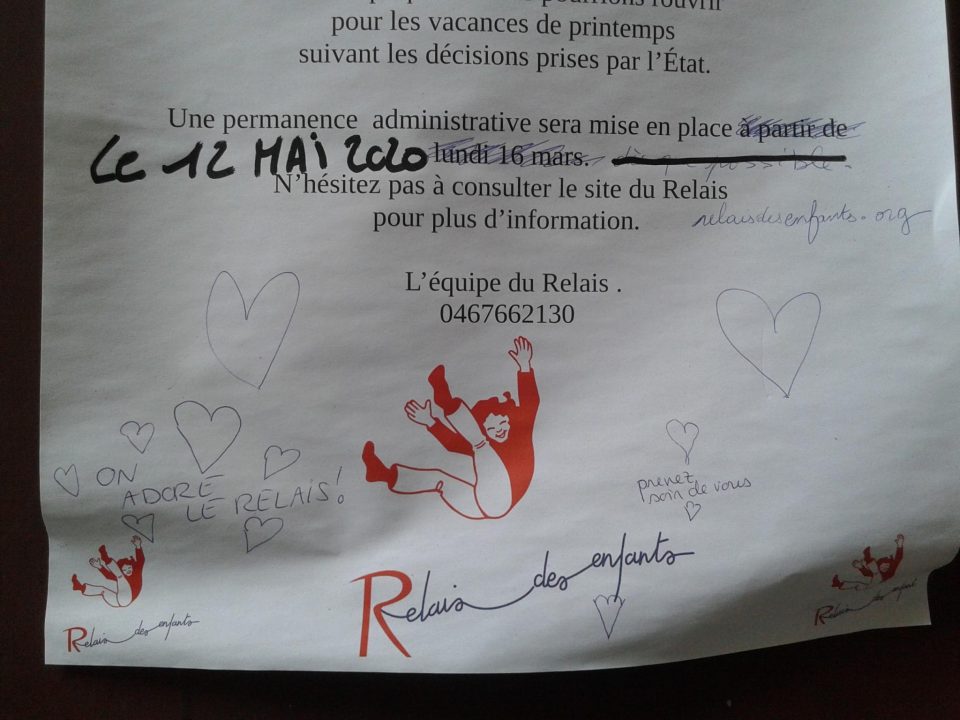 pourrions rouvrir
pour les vacances de printemps
suivant les décisions prises par l'État.
Une permanence administrative sera mise en place à partir de
LE 12 MAI 2020 lundi 16 mars. dès que possible.
N'hésitez pas à consulter le site du Relais
pour plus d'information. relaisdesenfants.org
L'équipe du Relais .
0467662130
ON
ADORE
LE RELAIS!
prenez
soin de vous
Relais des enfants
Relais des enfants
Relais des enfants